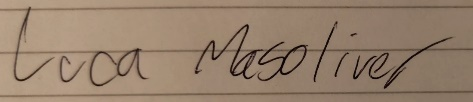 Luca Masoliver